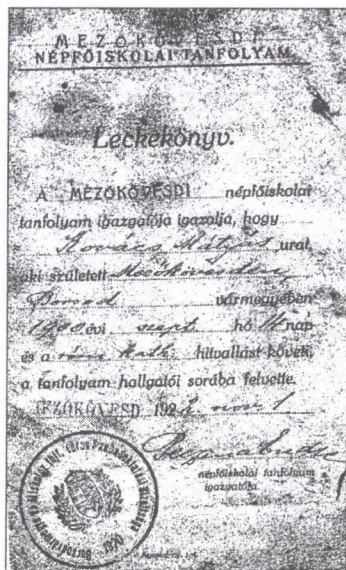 MEZŐKÖVESDI
NÉPFŐISKOLAI TANFOLYAM
Leckekönyv.
A MEZŐKÖVESDI népfőiskolai
tanfolyam igazgatója igazolja, hogy
Kovács Mátyás urat,
aki született Mezőkövesden,
Borsod vármegyében
1900 évi szept. hó 14 nap
és a róm. kath. hitvallást követi,
a tanfolyam hallgatói sorába felvette.
MEZŐKÖVESD, 192
népfőiskolai tanfolyam
igazgatója.